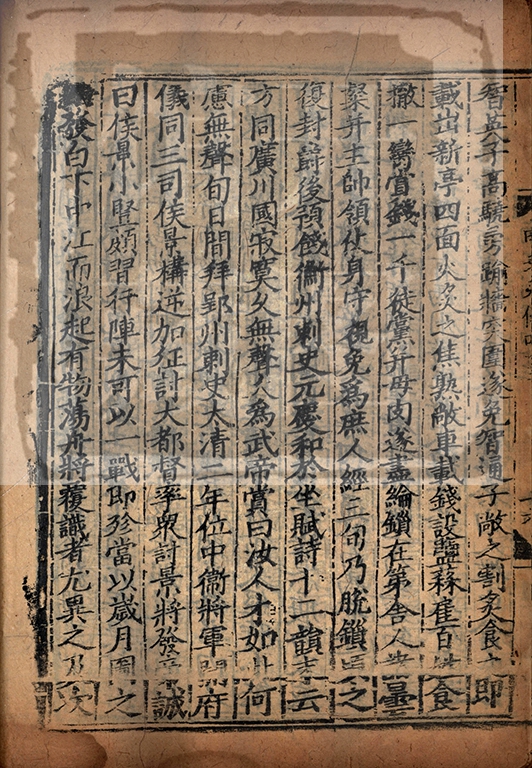 智英子高驄跨踰牆突圍遂免智通子敞之割炙食即
載出新亭四面火炙之焦熟敞車載錢設鹽蒜雇百食
撤一臠賞錢一千徒黨并母肉遂盡綸鎖在第舍人曇
粲并主帥領仗身守視免為庶人經三旬乃脫鎖之
復封爵後預餞衡州刺史元慶和於坐賦詩十二韻云
方同廣川國寂寞久無聲大為武帝賞曰汝人才如此何
慮無聲旬日間拜郢州刺史太清二年位中衛將軍開府
儀同三司侯景構逆加征討大都督率衆討景將發誡
曰侯景小豎頗習行陣未可以一戰即殄當以歲月圖之
發白下中江而浪起有物蕩舟將覆識者尤異之及次